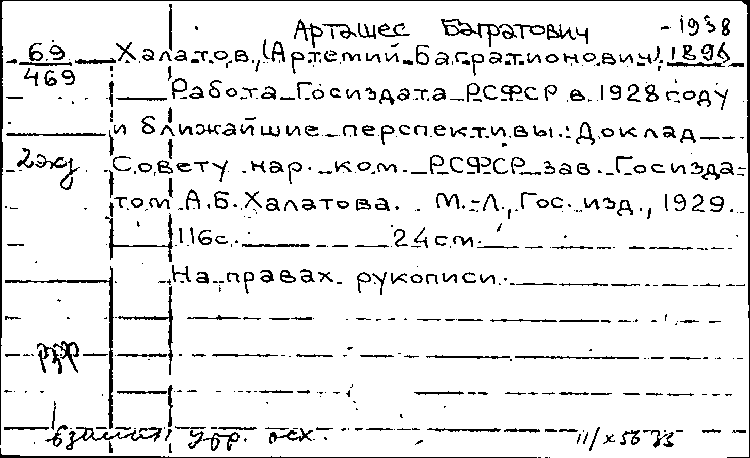 Арташес Багратович - 1938
69 Халатов, (Артемий Багратионович), 1896
469
Работа Госиздата РСФСР в 1928 году
и ближайшие перспективы: Доклад
2 экз Совету нар. ком. РСФСР зав. Госизда-
том А.Б. Халатова. М.-Л., Гос. изд., 1929.
116 с. 24 см.
На правах рукописи.
взамен осн. 11/X 56